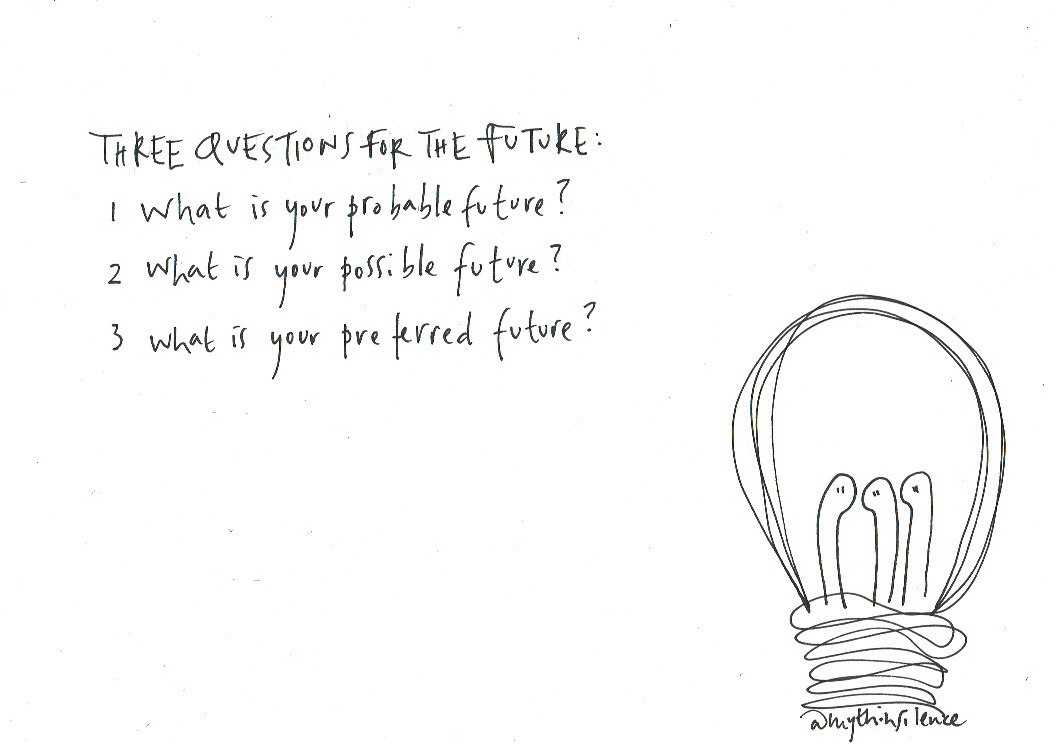 THREE QUESTIONS FOR THE FUTURE:
1 What is your probable future?
2 What is your possible future?
3 what is your preferred future?
@mythinsilence